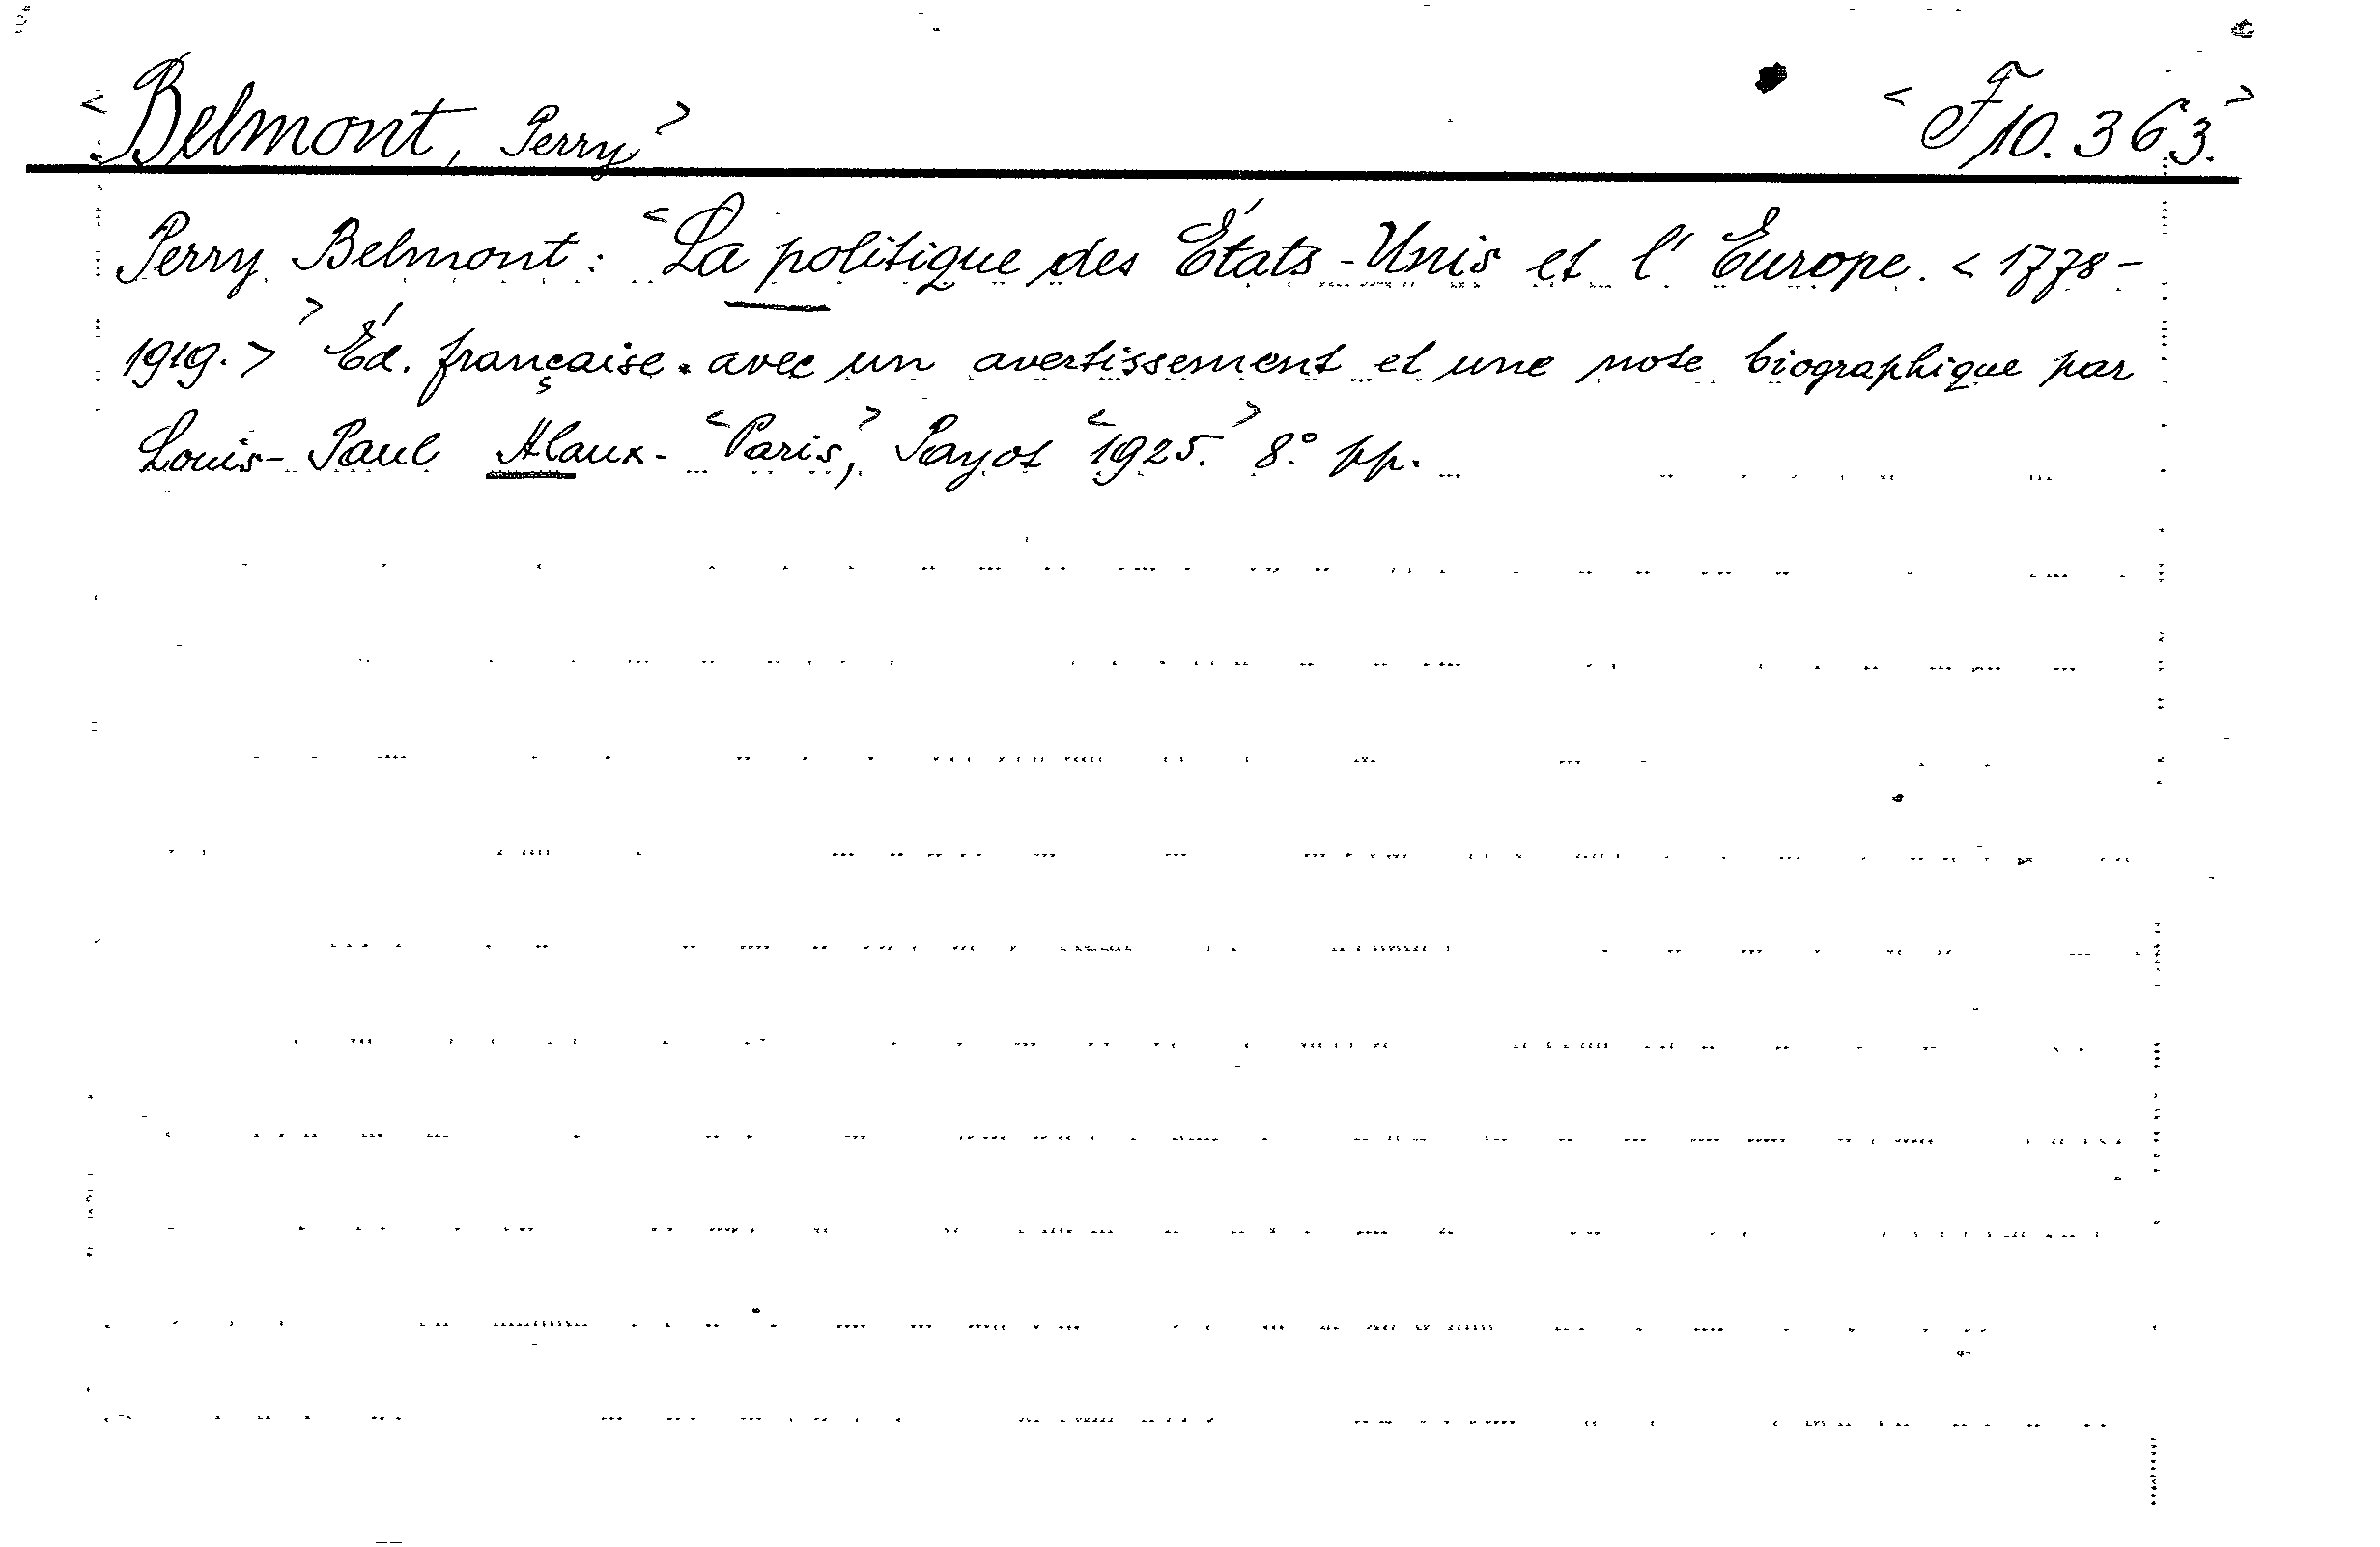 <Belmont, Perry> <F 10.363.>
Perry Belmont: <La politique des États-Unis et l'Europe. <1778-
1919.>> Éd. française. avec un avertissement et une note biographique par
Louis-Paul Alaux. <Paris>, Payot <1925.> 8.° pp.